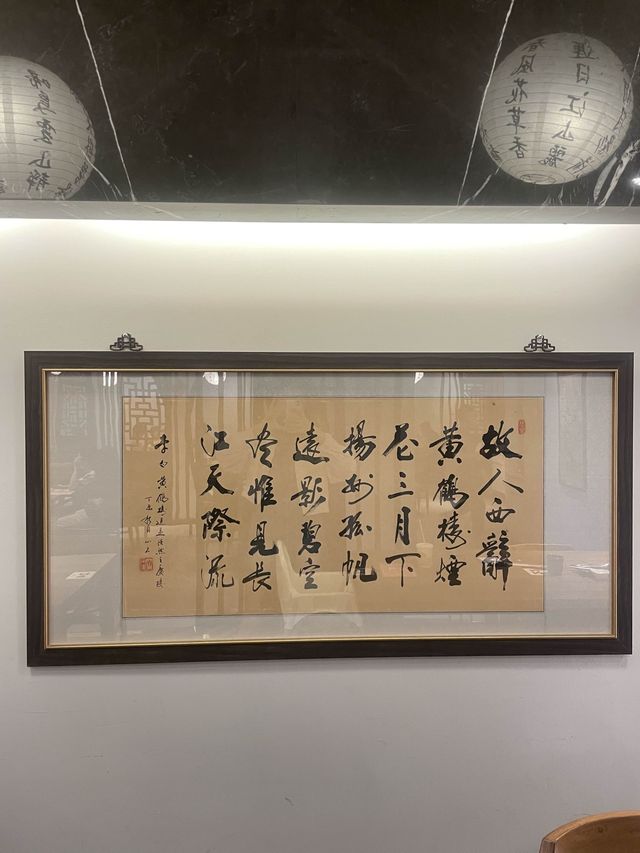 遲日江山麗
春風花草香
啼鳥雲山靜
故人西辭
黃鶴樓煙
花三月下
揚州孤帆
遠影碧空
尽惟見長
江天際流
李白黃鶴樓送孟浩然之廣陵